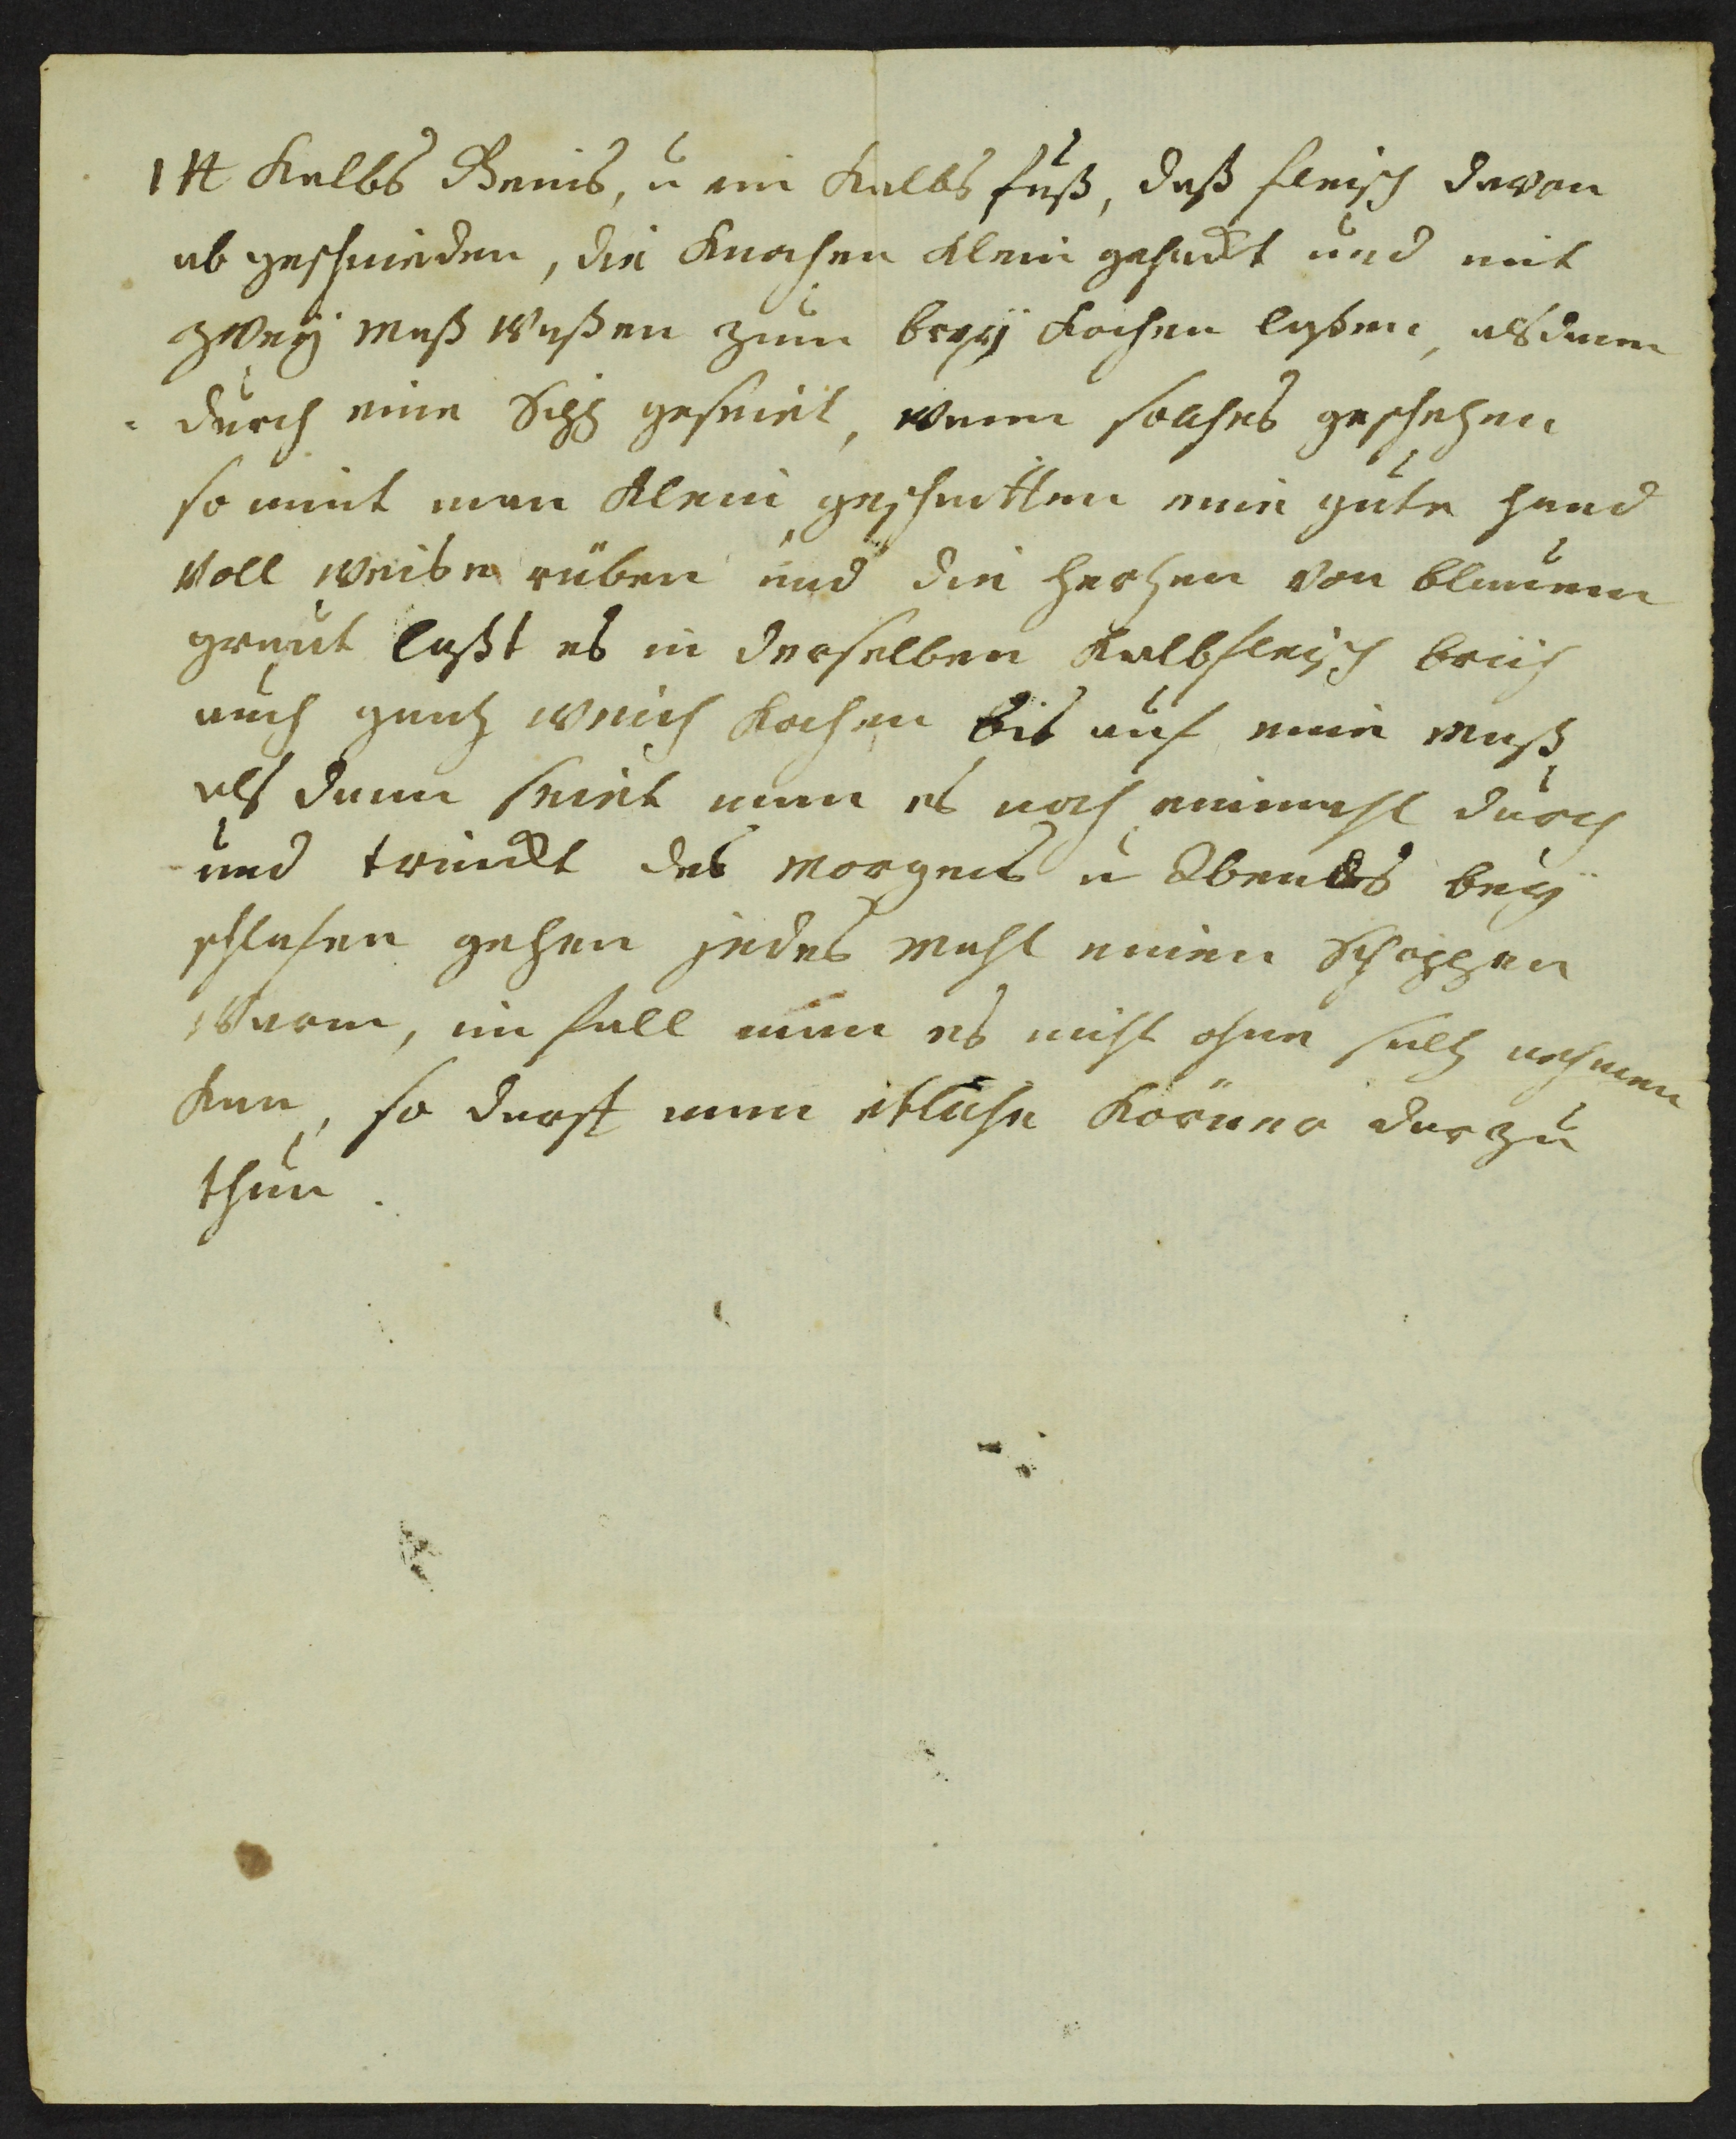 1 ℔ Kalbs Gemis, u ein Kalbs fuß, daß fleisch davon
ab geschnieden, die Knochen Klein gehackt und mit
zweÿ maß waßen zum breÿ Kochen laßen, alsdann
durch eine Sipp geseiet, wenn solches geschehen
so nimt man Klein geschnitten eine gute hand
Voll weise rüben und die hertzen von blauem
graut laßt es in derselben Kalbfleisch brüh
auch gantz weich Kochen bis auf eine maß
als dann seiet man es noch einmahl durch
und trinckt des morgens u Abends beÿ
schlafen gehen jedes mahl einen Schoppen
Warm, im fall man es nicht ohne saltz nehmen
Kan, so darf man etliche Körner darzu
thun.